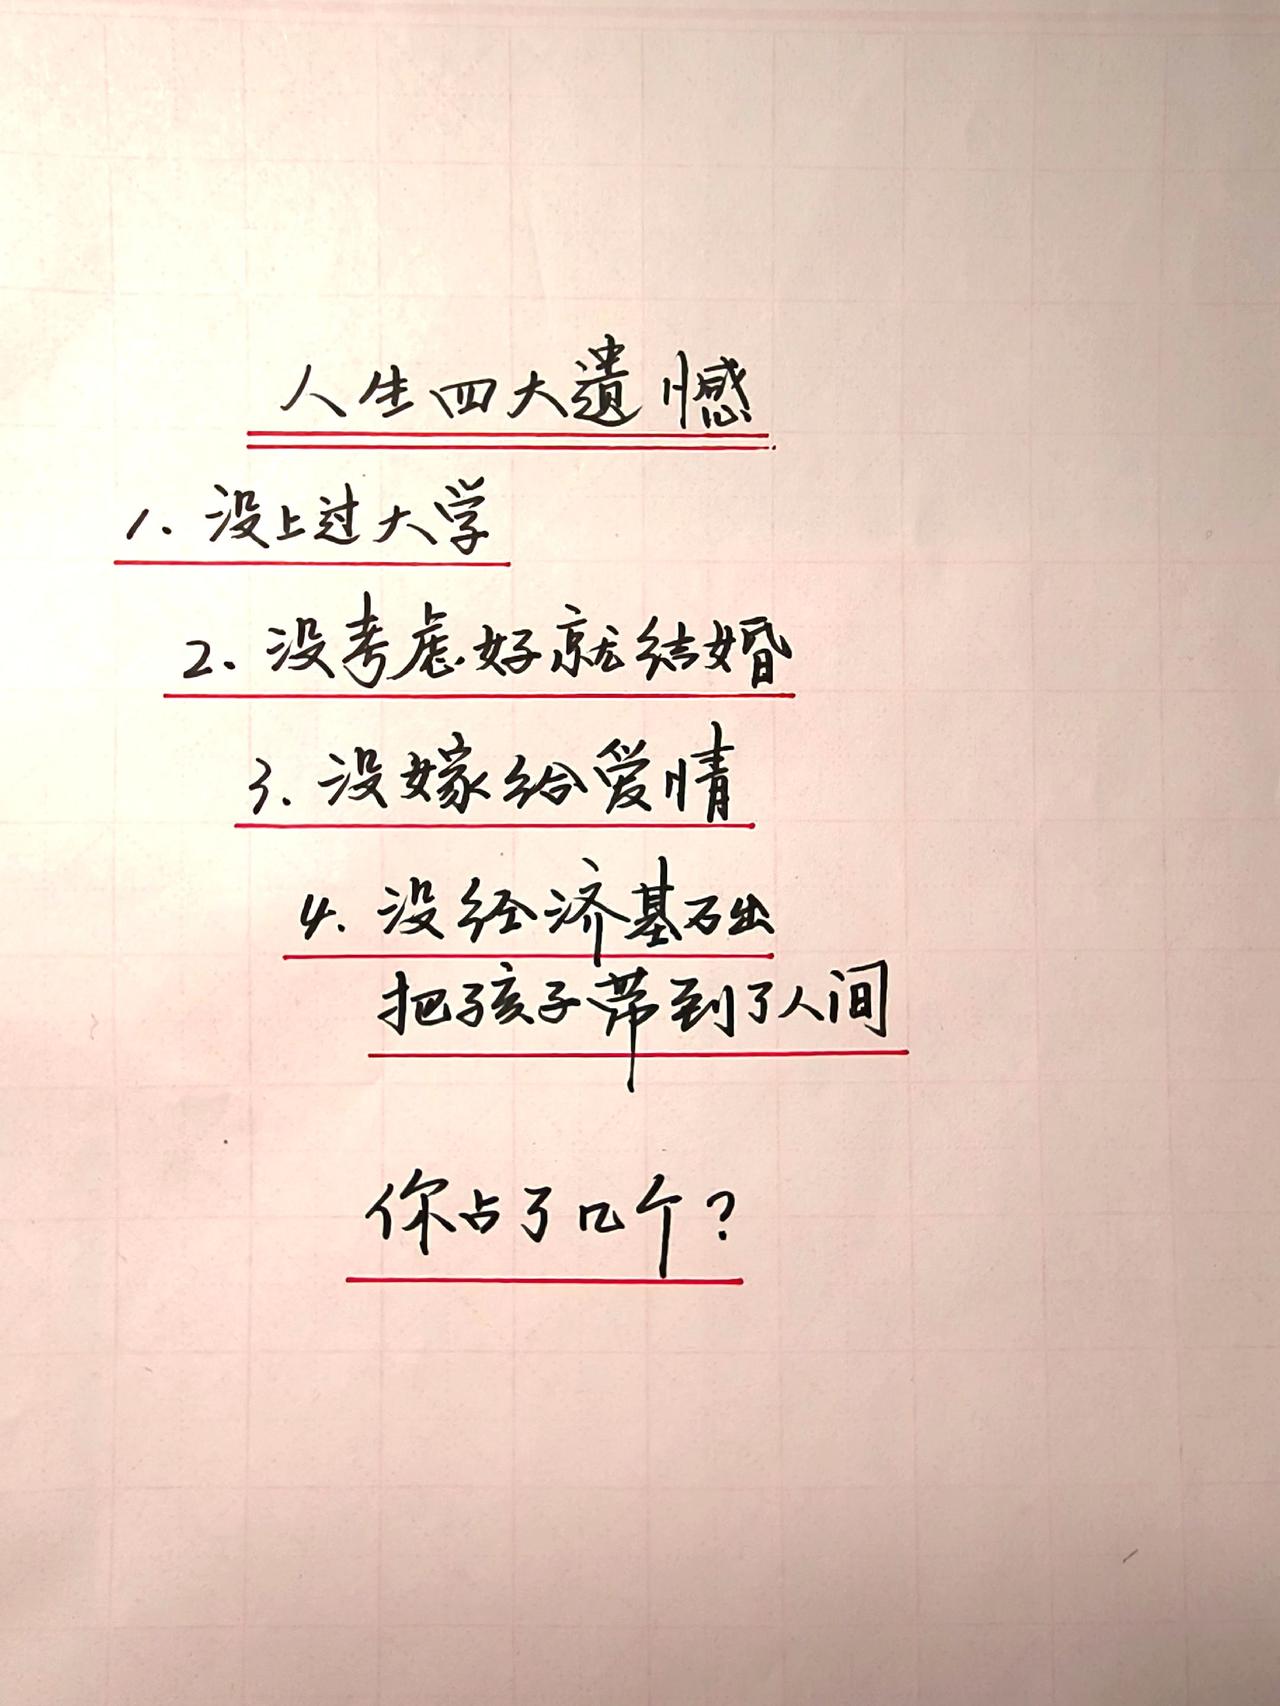 人生四大遗憾
1. 没上过大学
2. 没考虑好就结婚
3. 没嫁给爱情
4. 没经济基础
把孩子带到了人间
你占了几个?